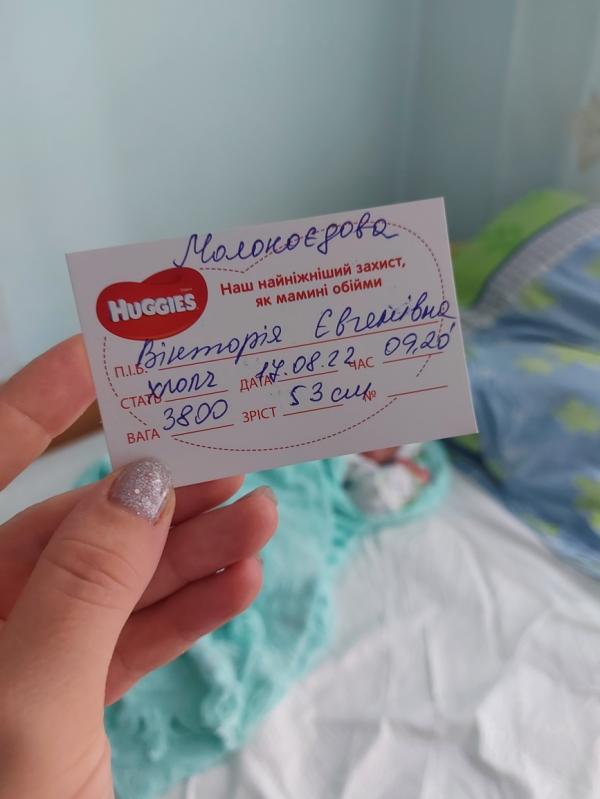 Молокоєдова
HUGGIES
Наш найніжніший захист,
як мамині обійми
П.І.Б. Вікторія Євгенівна
СТАТЬ хлопч ДАТА 17.08.22 ЧАС 09,20
ВАГА 3800 ЗРІСТ 53 см №